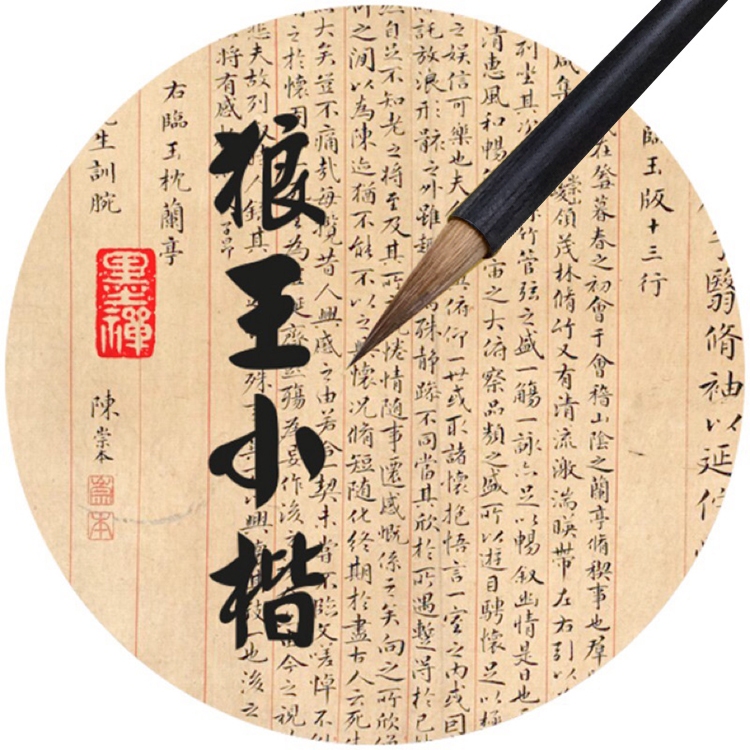 狼王小楷
墨禪
翳脩袖以延佇
臨玉版十三行
在癸暮春之初會于會稽山陰之蘭亭脩禊事也羣
咸集崇領茂林脩竹又有清流激湍暎帶左右引以
列坐其次竹管弦之盛一觴一詠亦足以暢叙幽情是日也
清惠風和暢宙之大俯察品類之盛所以遊目騁懷足以極
之娛信可樂也夫俯仰一世或取諸懷抱悟言一室之內或因
託放浪形骸之外雖殊靜躁不同當其欣於所遇暫得於己
然自足不知老之將至及其所惓情隨事遷感慨係之矣向之所欣
之間以為陳迹猶不能不以之興懷況脩短隨化終期於盡古人云死生
大矣豈不痛哉每攬昔人興感之由若合契未嘗不臨文嗟悼不
之於懷固為齊殤為妄作後今之視
悲夫故列人錄其殊興一也後之
將有感
右臨玉枕蘭亭
生訓腕
陳崇本
崇本